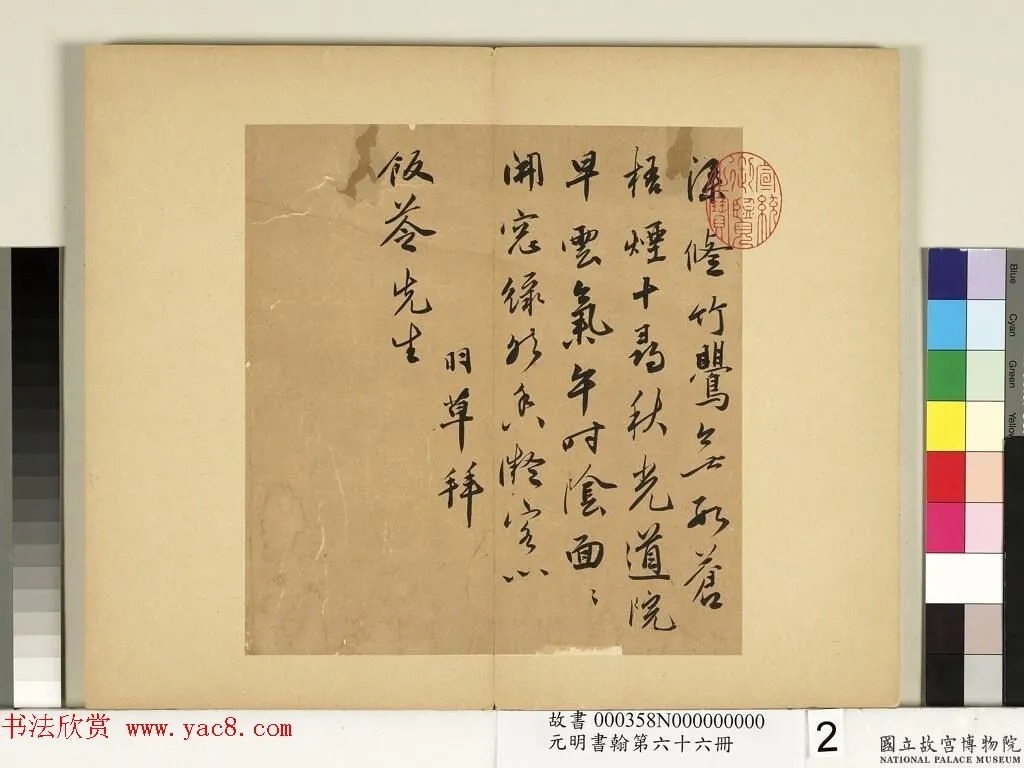 宣統御覽之寶
深修竹鸎無蒼
梧煙十尋秋光道院
早雲氣午時陰面〻
開窓綠凝客心
草拜
飯苓先生
Blue
Cyan
Green
Yellow
书法欣赏 www.yac8.com
故書 000358N000000000
元明書翰第六十六冊
2
國立故宮博物院
NATIONAL PALACE MUSEUM